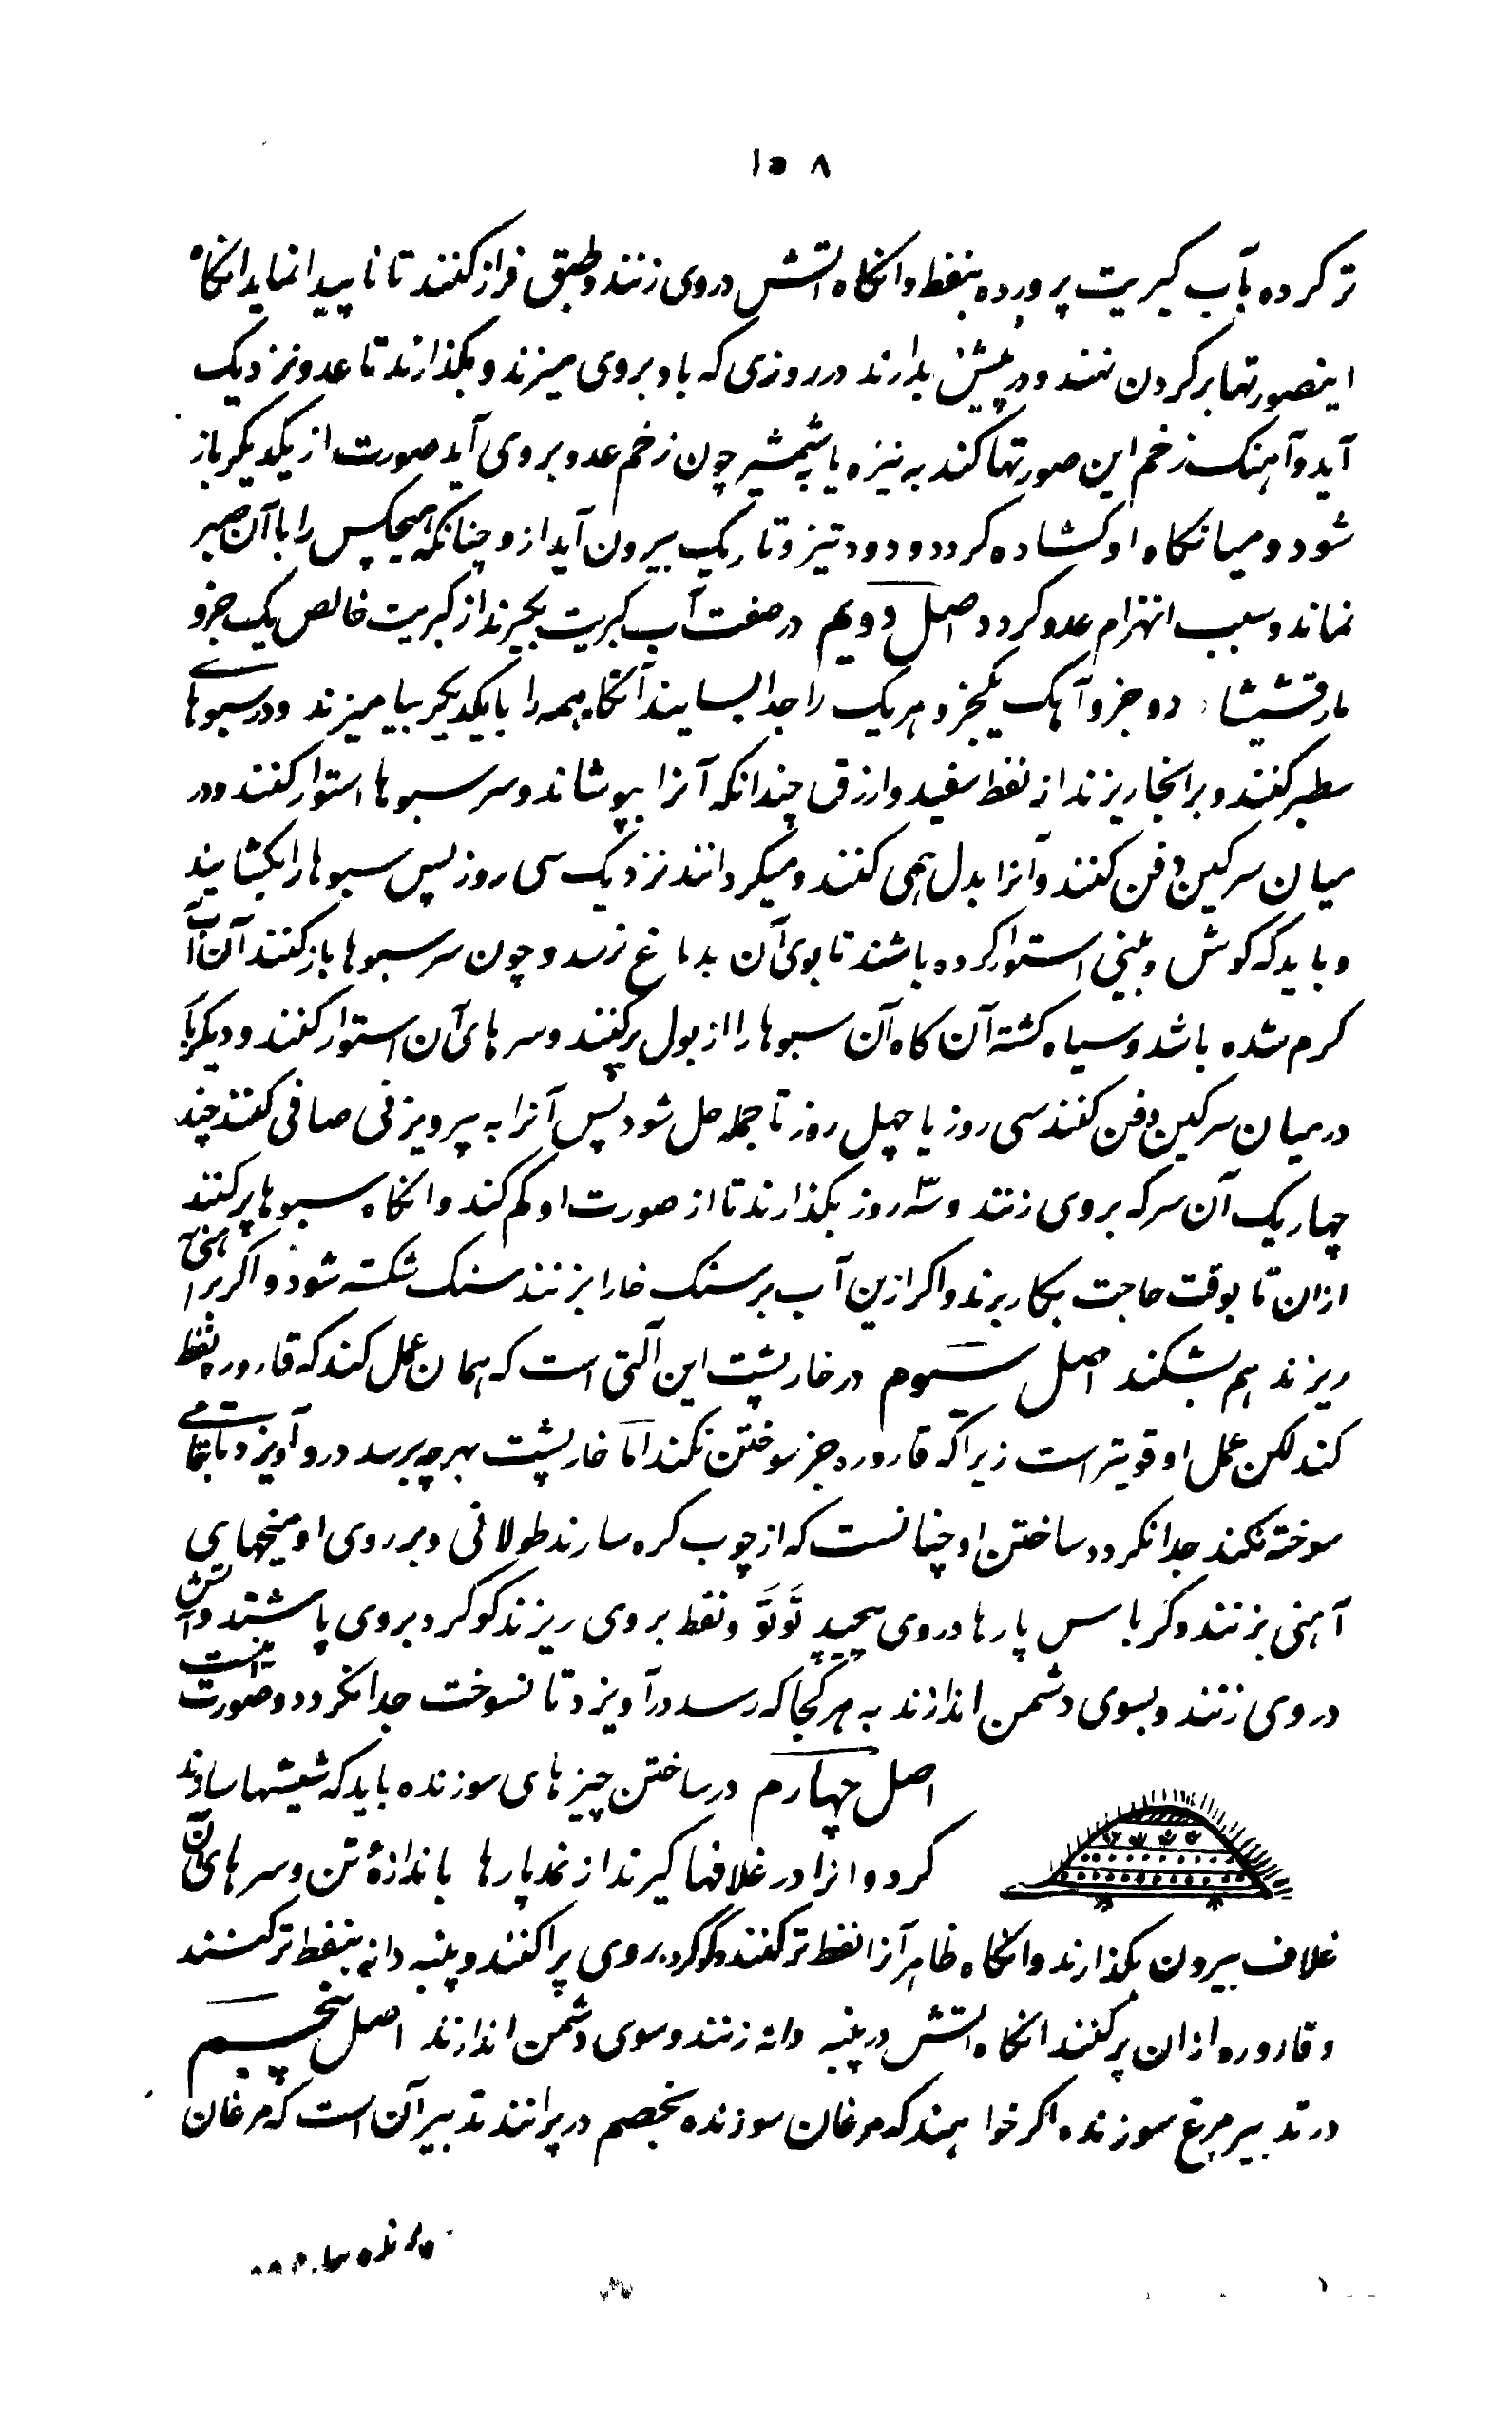 ۱۵۸
تر کرده بآب کبریت پرورده بنفط وانکاه اتش دروی زنند وطبق فراز کنند تا ناپیدا نماید انکاه
اینصورتها بر کردن نهند ودر پیش بدارند در روزی که باد بروی میزند و بکذارند تا عدو نزدیک
آید وآهنک زخم این صورتها کند به نیزه یا شمشیر چون زخم عدو بروی آید صورت از یکدیکر باز
شود و میانکاه او کشاده کردد و دود تیز و تاریک بیرون آید ازو چنانکه هیچکس را با آن صبر
نماند و سبب انهزام عدو کردد اصل دویم در صفت آب کبریت بکیرند از کبریت خالص یک جزو
مارقشیشا دو جزو آهک یکجزو هریک را جدا بسایند آنکاه همه را بایکدیکر بیامیزند و در سبوهای
سطبر کنند و برانجا ریزند از نفط سفید و ازرق چندانکه آنرا بپوشاند و سر سبوها استوار کنند و در
میان سرکین دفن کنند و آنرا بدل همی کنند و میکردانند نزدیک سی روز پس سبوها را بکشایند
و باید که کوش و بینی استوار کرده باشند تا بوی آن بدماغ نرسد و چون سر سبوها باز کنند آن آب
کرم شده باشد و سیاه کشته آن کاه آن سبوها را از بول پر کنند و سرهای آن استوار کنند و دیکر بار
در میان سرکین دفن کنند سی روز یا چهل روز تا جمله حل شود پس آنرا به پرویزنی صافی کنند چند
چهاریک آن سرکه بروی زنند و سه روز بکذارند تا از صورت او کم کند و انکاه سبوها پر کنند
ازان تا بوقت حاجت بکار برند و اکر ازین آب بر سنک خارا بزنند سنک شکسته شود و اکر بر آهنی
ریزند هم بشکند اصل سیوم در خارپشت این آلتی است که همان عمل کند که قاروره نفط
کند لکن عمل او قویتر است زیرا که قاروره جز سوختن نکند اما خارپشت بهرچه برسد درو آویزد و تا بتمامی
سوخته نکند جدا نکردد ساختن او چنانست که از چوب کره سازند طولانی و بر روی او میخهایی
آهنی بزنند و کرباس پارها دروی پیچید تَوتَو و نفط بروی ریزند کوکرد بروی پاشند و آتش
دروی زنند و بسوی دشمن اندازند به هر کجا که رسد درآویزد و تا نسوخت جدا نکردد و صورت اینست
اصل چهارم در ساختن چیزهای سوزنده باید که شیشها سازند
کرد و انرا در غلافها کیرند از نمدپارها باندازۀ تن و سرهای آن
غلاف بیرون بکذارند و انکاه ظاهر آنرا نفط تر کنند و کوکرد بروی پراکنند و پنبه دانه بنفط تر کنند
و قاروره ازان پر کنند انکاه اتش در پنبه دانه زنند و سوی دشمن اندازند اصل پنجم
در تدبیر مرغ سوزنده اکر خواهند که مرغان سوزنده بخصم در پرانند تدبیر آن است که مرغان